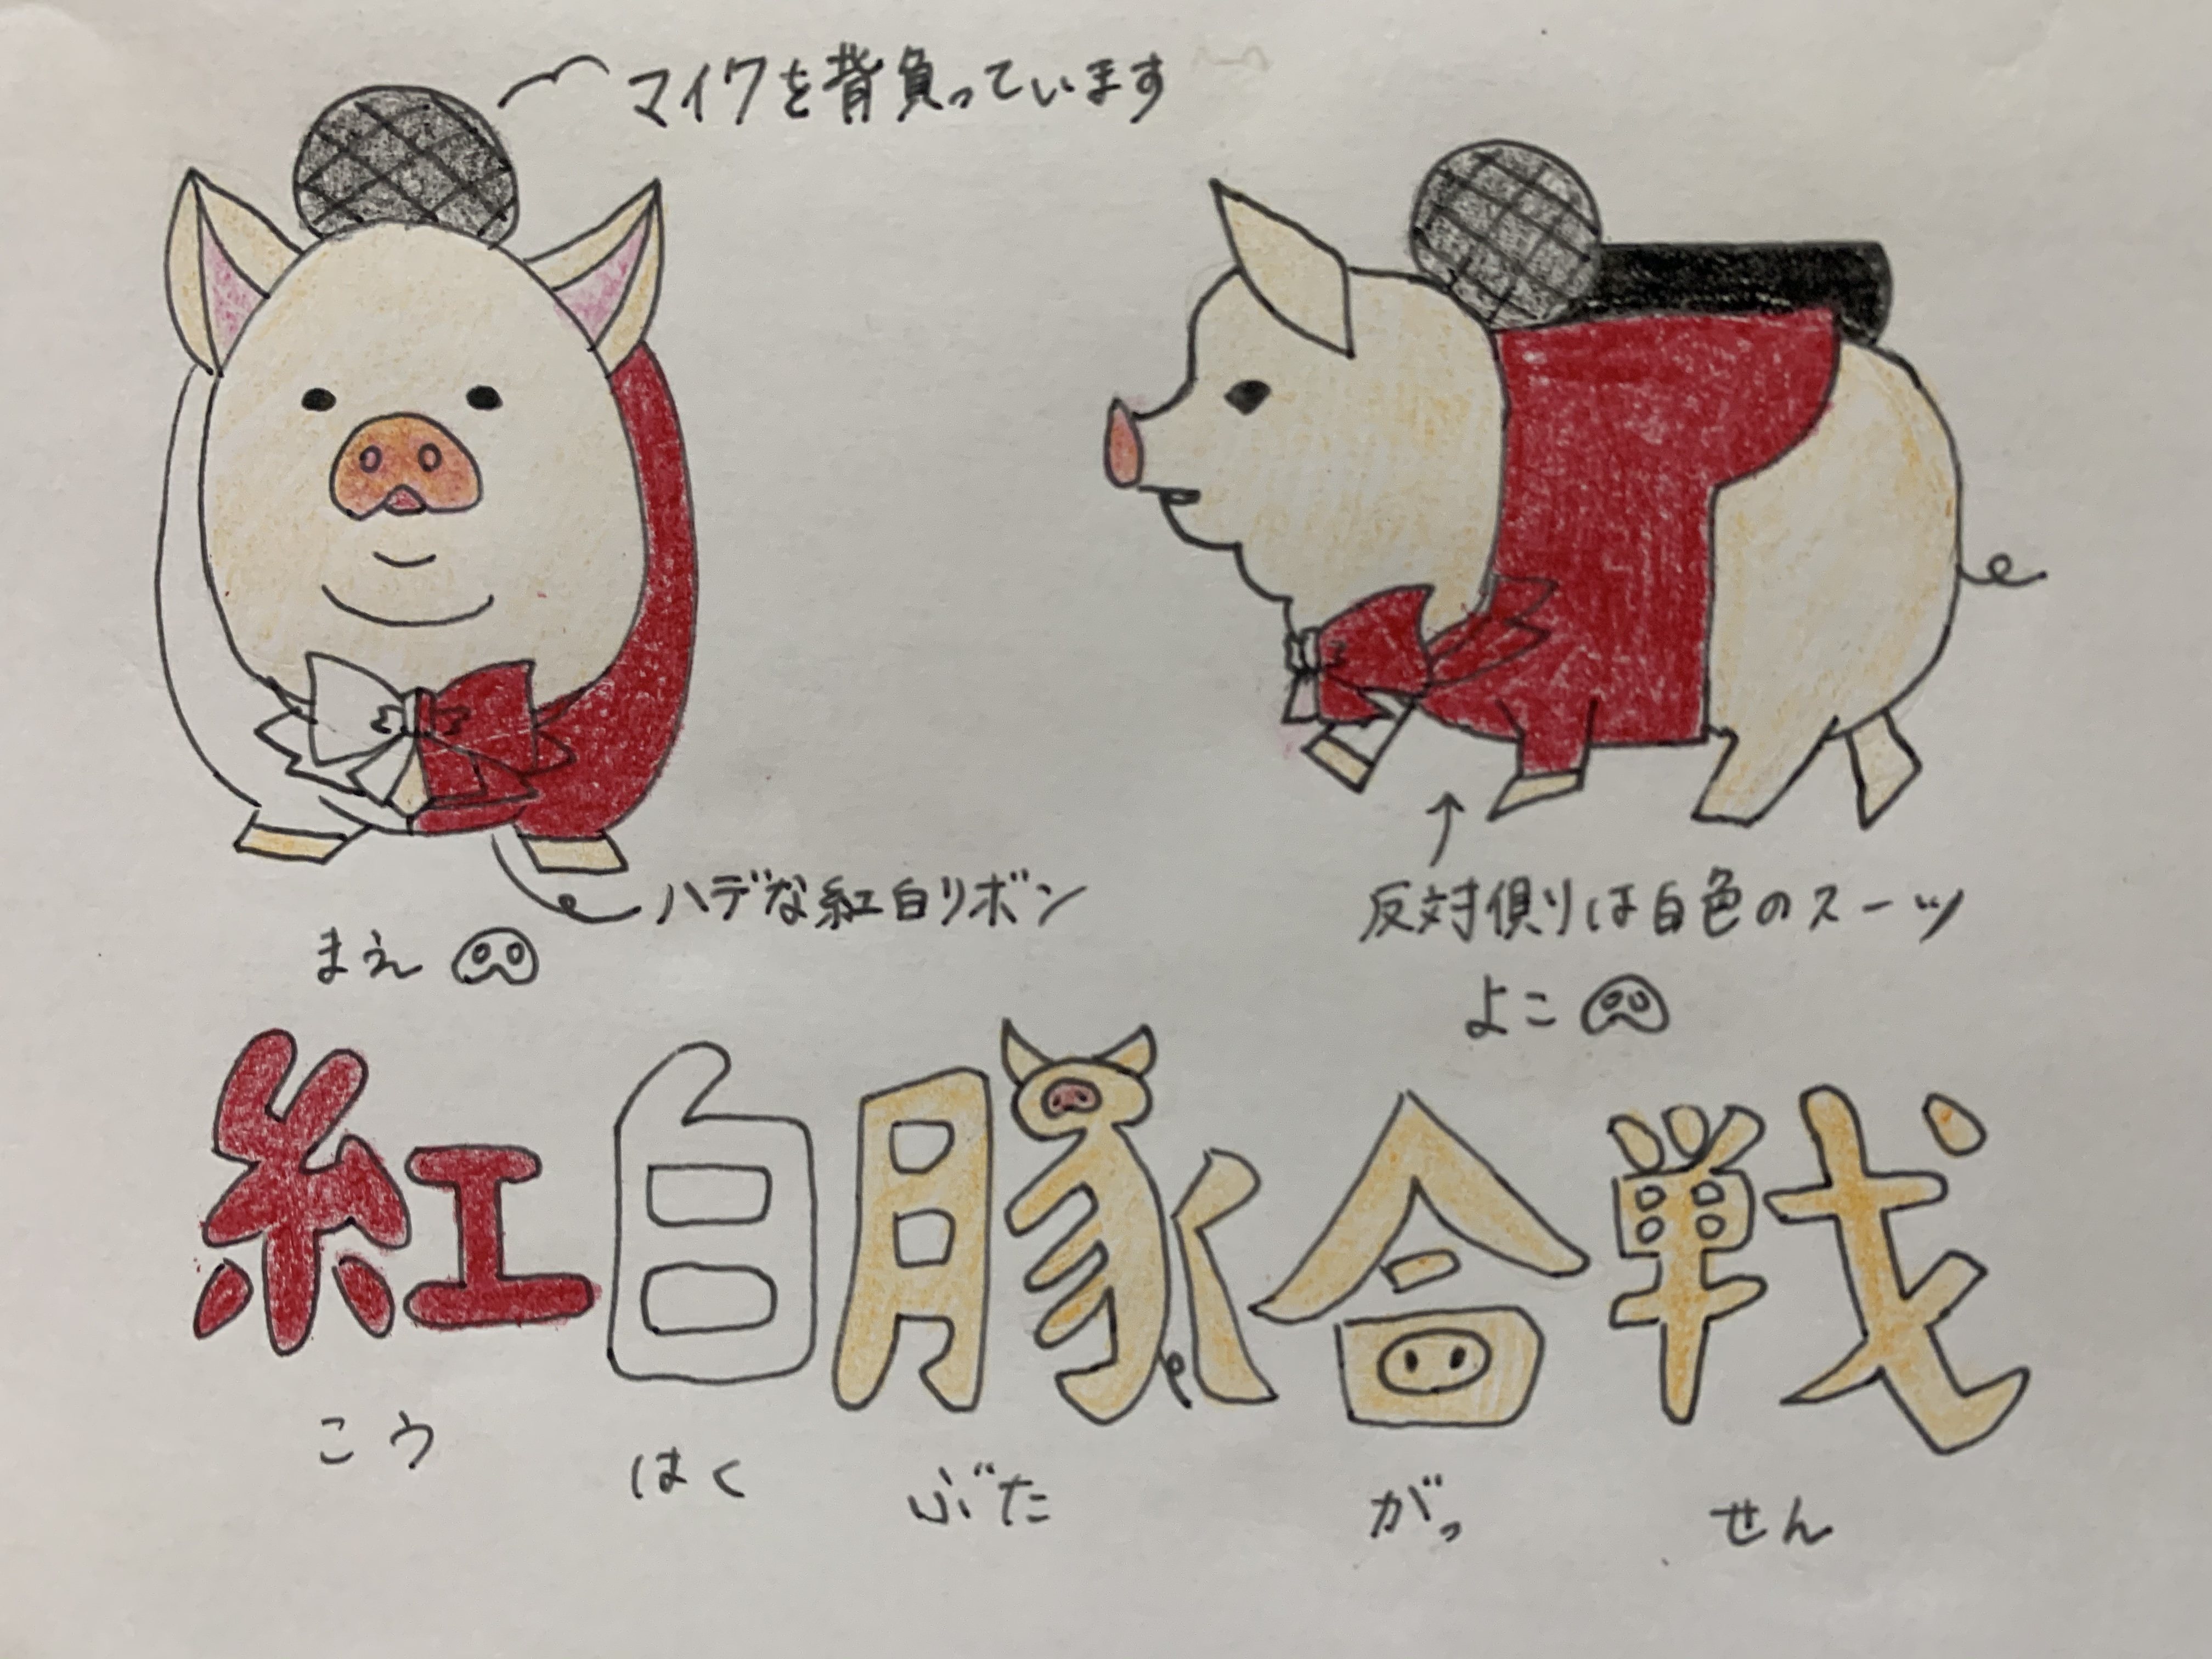 マイクを背負っています
ハデな紅白リボン
まえ
反対側りは白色のスーツ
よこ
紅白豚合戦
こう はく ぶた がっ せん